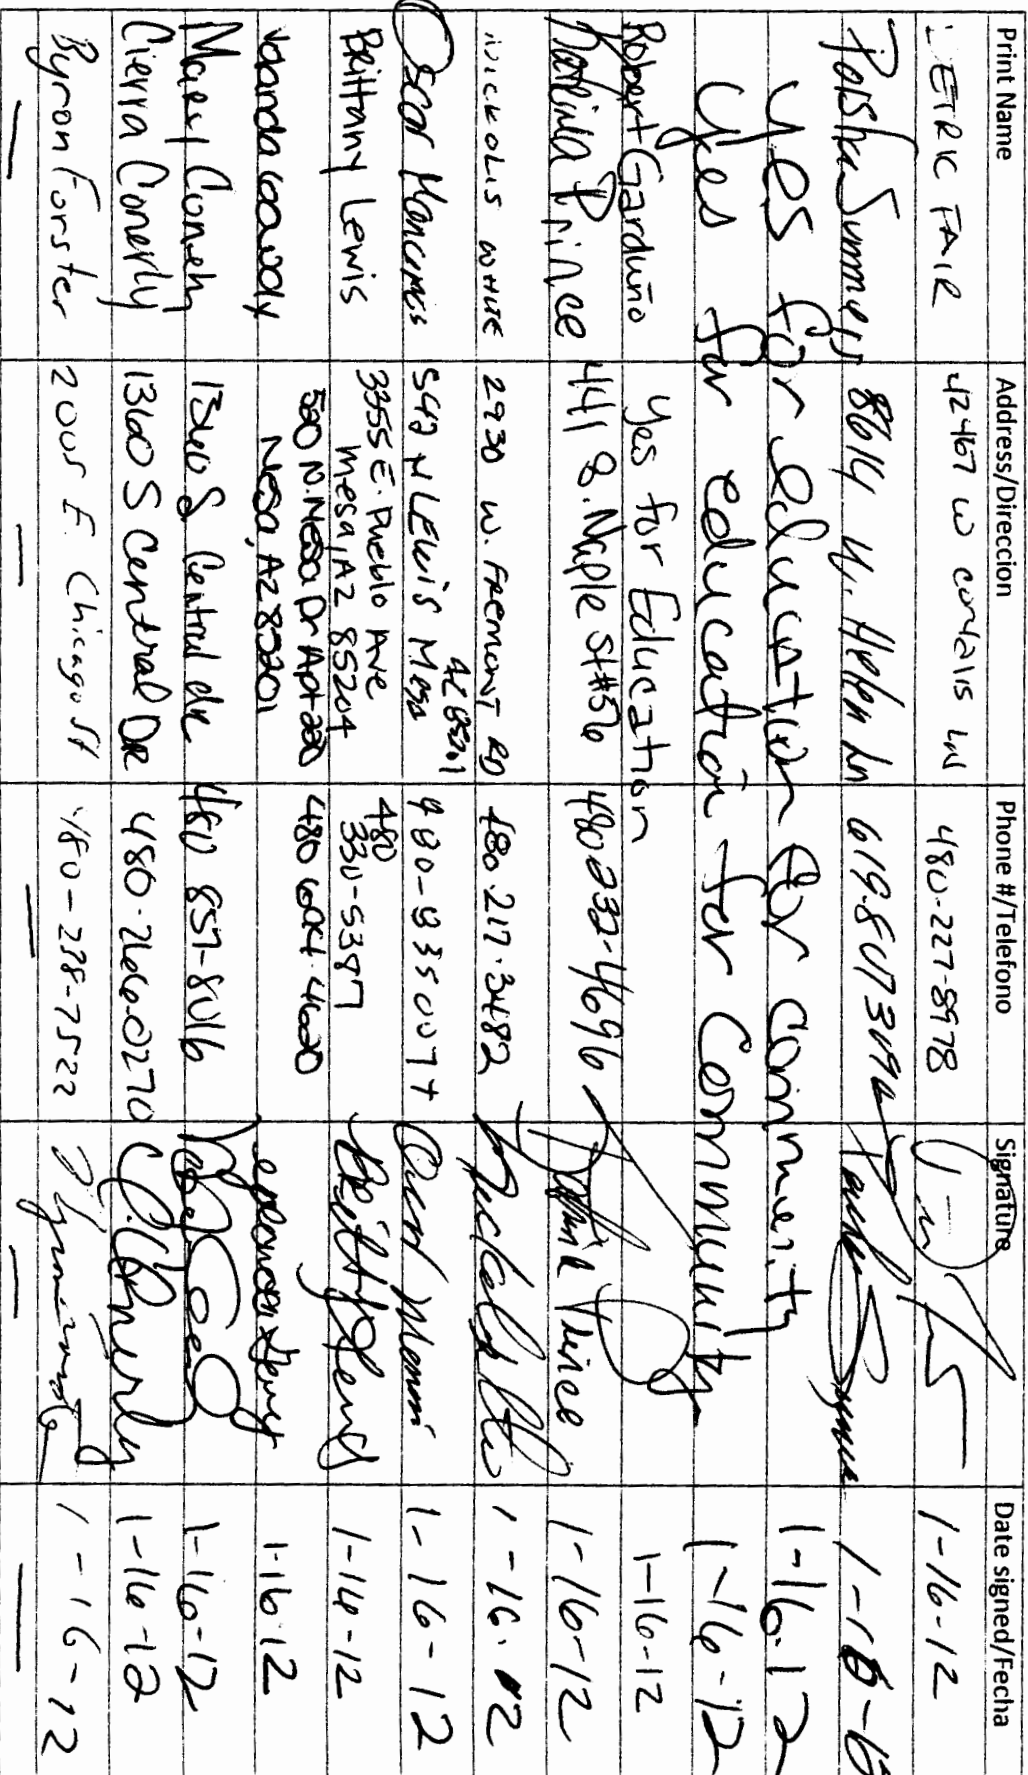 Print Name Address/Direccion Phone #/Telefono Signature Date signed/Fecha
ETRIC FAIR 42467 W LN 480-227-8978 1-16-12
Porsha Summers 8614 W. Helen Ln 619.807 1-16-12
Yes for education for community 1-16-12
Yes for education for Community 1-16-12
Robert Garduño Yes for Education 1-16-12
Prince 4411 S. Maple St #56 480-232-4696 Prince 1-16-12
NICKOLIS WHITE 2930 W. FREMONT RD 480.217.3482 1-16.12
Oscar 540 N LEWIS Mesa AZ 85201 480-835 0074 1-16-12
Brittany Lewis 3355 E. Pueblo Ave Mesa, AZ 85204 480 330-5387 1-16-12
520 N. Mesa Dr Apt 220 Mesa, AZ 85201 480 1-16-12
Mary Conerly 1360 S Central dr 480 857-8016 1-16-12
Cierra Conerly 1360 S Central DR 480-266-0270 C. Conerly 1-16-12
Byron Forster E Chicago St 480-278-7522 1-16-12
— — — — —